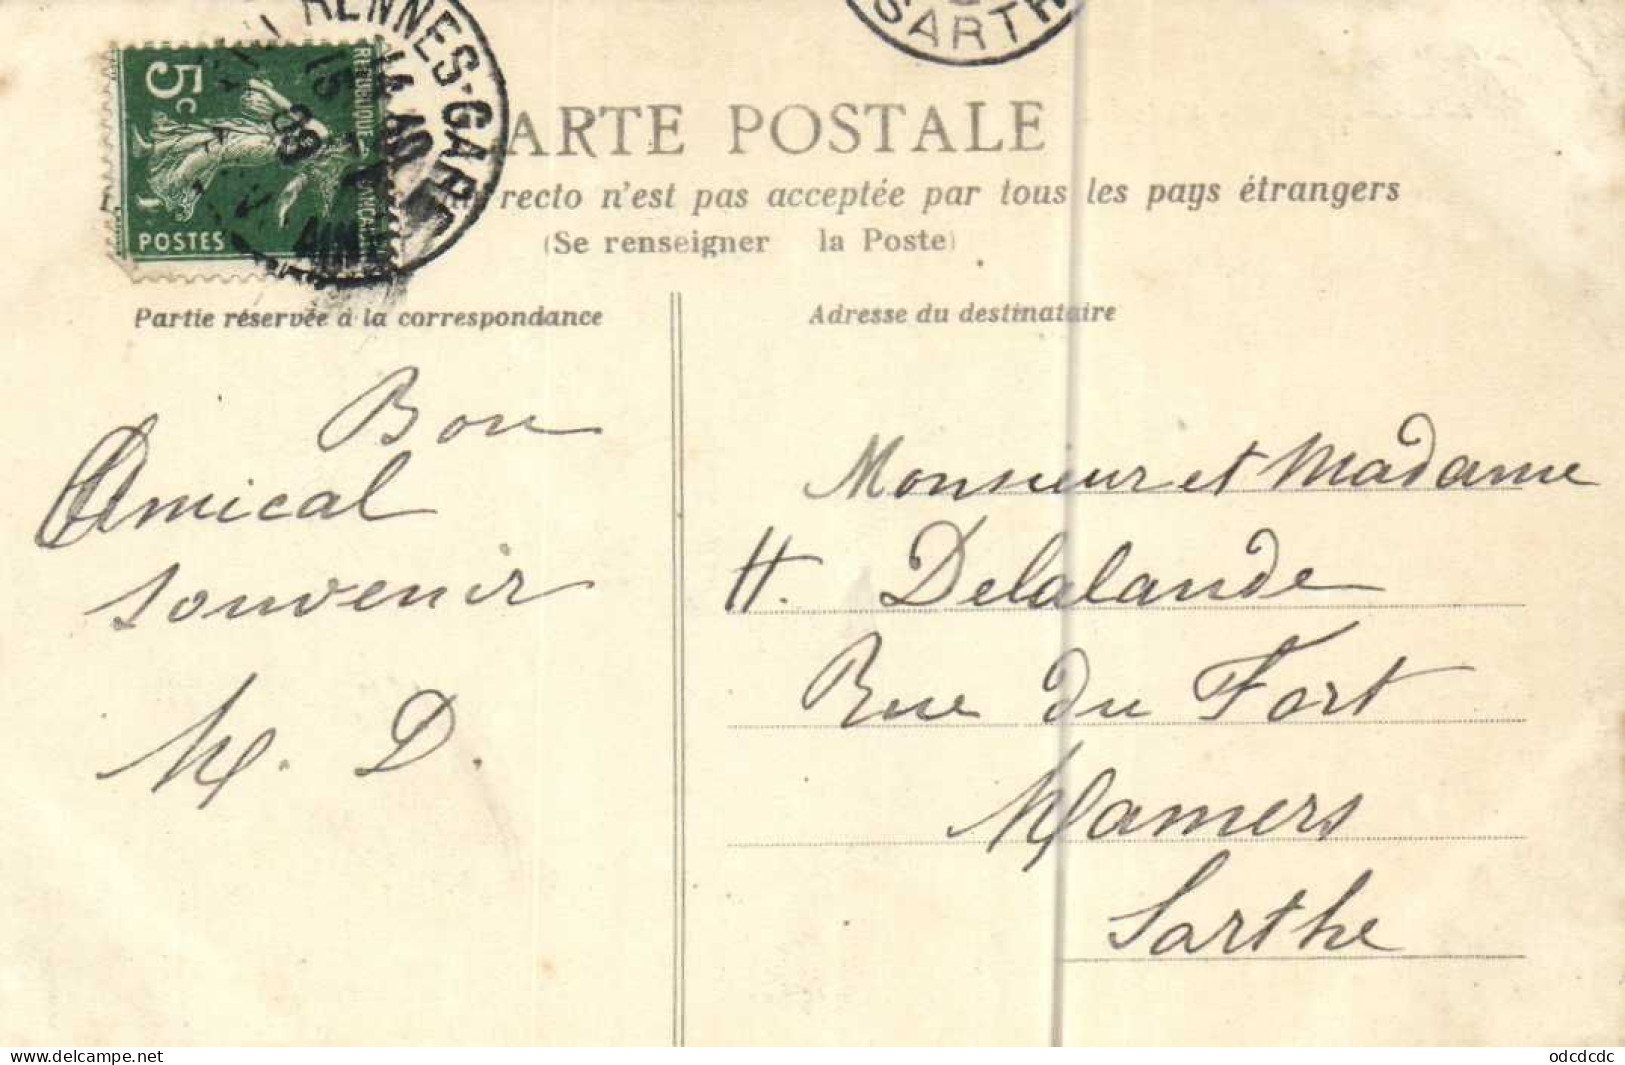 RENNES-GARE
14 40
15
09
ILLE
SARTHE
5c
REPUBLIQUE FRANÇAISE
POSTES
CARTE POSTALE
recto n'est pas acceptée par tous les pays étrangers
(Se renseigner la Poste)
Partie réservée à la correspondance
Adresse du destinataire
Bon
Amical
souvenir
M. D.
Monsieur et Madame
H. Delalande
Rue du Fort
Mamers
Sarthe
www.delcampe.net
odcdcdc